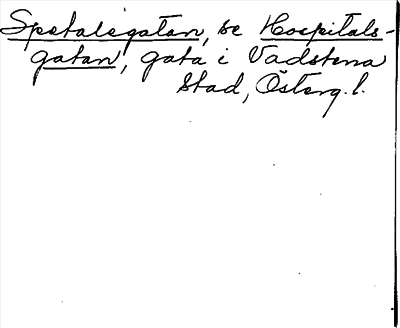 Spetalsgatan, se Hospitals-
gatan, gata i Vadstena
Stad, Österg. l.